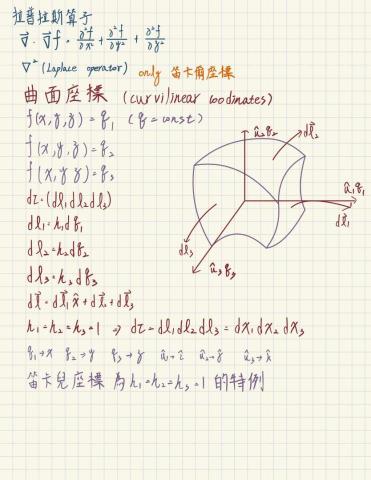 拉普拉斯算子
∇⃗ · ∇⃗f = ∂²f/∂x² + ∂²f/∂y² + ∂²f/∂z²
∇² (Laplace operator) only 笛卡爾座標
曲面座標 (curvilinear coodinates)
f(x,y,z) = q₁ (q = const)
f(x,y,z) = q₂
f(x,y,z) = q₃
dτ = (dl₁dl₂dl₃)
dl₁ = h₁dq₁
dl₂ = h₂dq₂
dl₃ = h₃dq₃
dl⃗ = dl⃗₁x̂ + dl⃗₂ + dl⃗₃
h₁ = h₂ = h₃ = 1 ⇒ dτ = dl₁dl₂dl₃ = dx₁dx₂dx₃
q₁→x q₂→y q₃→z û₁→î û₂→ĵ û₃→k̂
笛卡兒座標 為 h₁=h₂=h₃=1 的特例
û₂q₂
dl⃗₂
û₁q₁
dl⃗₁
dl₃
û₃q₃